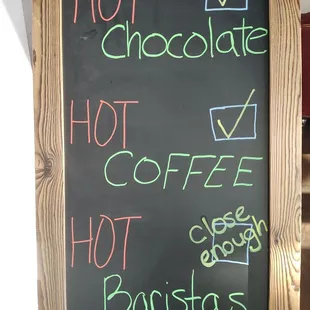 HOT
Chocolate
HOT
COFFEE
HOT
close
enough
Baristas